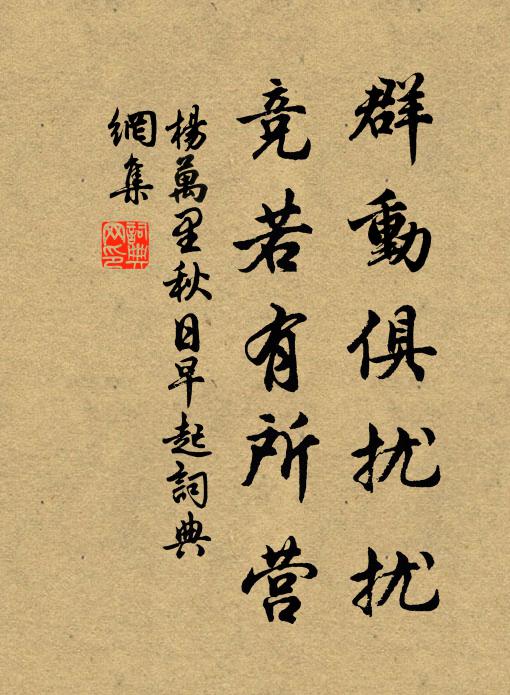 群動俱扰扰
竞若有所营
楊萬里秋日早起詞典
網集
詞典
网印